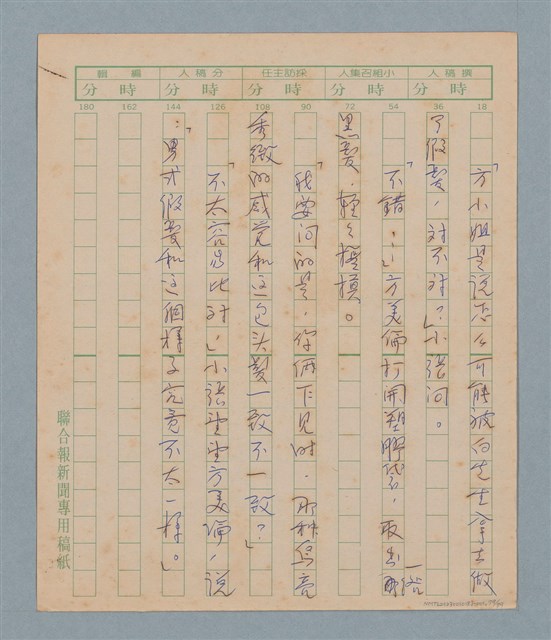 撰稿人
小組召集人
採訪主任
分稿人
編輯
時 分
時 分
時 分
時 分
時 分
18 36 54 72 90 108 126 144 162 180
「方小姐是说怎么可能被白先生拿去做
了假髮，对不对？」小張问。
「不錯…」方美倫打開塑膠袋，取出那一綹
黑髮，輕々摸摸。
「我要问的是，你俩下見时，那种烏亮
秀緻的感觉和这一包头髮一致不一致？」
「不太容易比对，」小張望望方美倫，说
：「男式假髮和这個樣子究竟不太一樣。」
聯合報新聞專用稿紙